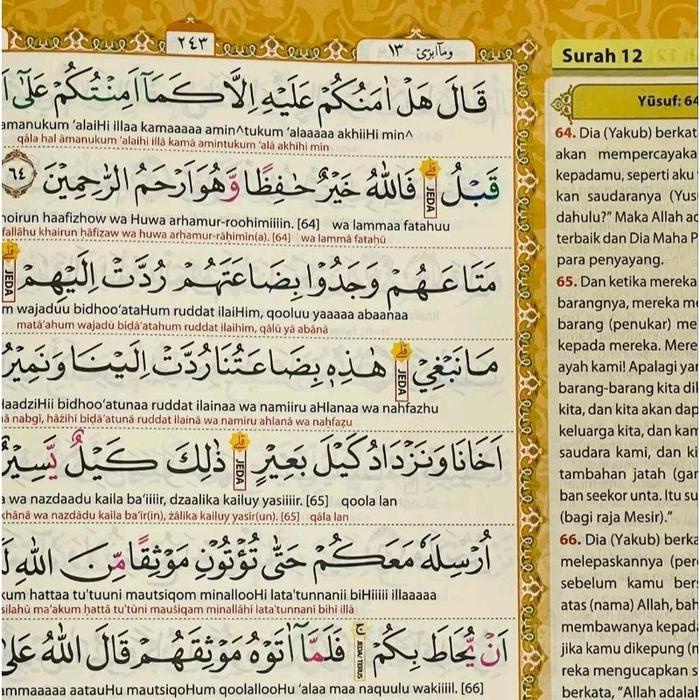 ٢٤٣
وماابرئ ١٣
قَالَ هَلْ اٰمَنُكُمْ عَلَيْهِ اِلَّا كَمَآ اَمِنْتُكُمْ عَلٰٓى
amanukum ‘alaiHi illaa kamaaaaa amin^tukum ‘alaaaaa akhiiHi min^
qāla hal āmanukum ‘alaihi illā kamā amintukum ‘alā akhīhi min
قَبْلُۗ JEDA فَاللّٰهُ خَيْرٌ حٰفِظًا وَّهُوَ اَرْحَمُ الرّٰحِمِيْنَ ٦٤
hoirun haafizhow wa Huwa arhamur-roohimiiin. [64] wa lammaa fatahuu
fallāhu khairun ḥāfiẓaw wa huwa arḥamur-rāḥimīn(a). [64] wa lammā fataḥū
مَتَاعَهُمْ وَجَدُوْا بِضَاعَتَهُمْ رُدَّتْ اِلَيْهِمْۗ JEDA
m wajaduu bidhoo‘ataHum ruddat ilaiHim, qooluu yaaaaa abaanaa
matā‘ahum wajadū biḍā‘atahum ruddat ilaihim, qālū yā abānā
مَا نَبْغِيْۗ JEDA هٰذِهٖ بِضَاعَتُنَا رُدَّتْ اِلَيْنَا وَنَمِيْرُ
HaadziHii bidhoo‘atunaa ruddat ilainaa wa namiiru aHlanaa wa nahfazhu
ā nabgī, hāżihī biḍā‘atunā ruddat ilainā wa namīru ahlanā wa naḥfaẓu
اَخَانَا وَنَزْدَادُ كَيْلَ بَعِيْرٍۗ JEDA ذٰلِكَ كَيْلٌ يَّسِيْرٌ
a wa nazdaadu kaila ba‘iiir, dzaalika kailuy yasiiiir. [65] qoola lan
khānā wa nazdādu kaila ba‘īr(in), żālika kailuy yasīr(un). [65] qāla lan
اُرْسِلَهٗ مَعَكُمْ حَتّٰى تُؤْتُوْنِ مَوْثِقًا مِّنَ اللّٰهِ
kum hattaa tu'tuuni mautsiqom minallooHi lata'tunnanii biHiiiii illaaaaa
silahū ma‘akum ḥattā tu'tūni mauṡiqam minallāhi lata'tunnanī bihī illā
اَنْ يُّحَاطَ بِكُمْۚ JEDA/TERUS فَلَمَّآ اٰتَوْهُ مَوْثِقَهُمْ قَالَ اللّٰهُ عَلٰى
mmaaaaa aatauHu mautsiqoHum qoolallooHu ‘alaa maa naquulu wakiiiil. [66]
Surah 12
Yūsuf: 64
64. Dia (Yakub) berkat
akan mempercayaka
kepadamu, seperti aku
kan saudaranya (Yus
dahulu?” Maka Allah ad
terbaik dan Dia Maha P
para penyayang.
65. Dan ketika mereka
barangnya, mereka m
barang (penukar) me
kepada mereka. Mere
ayah kami! Apalagi yan
barang-barang kita dik
kita, dan kita akan dap
keluarga kita, dan kam
saudara kami, dan ki
tambahan jatah (gan
ban seekor unta. Itu su
(bagi raja Mesir).”
66. Dia (Yakub) berka
melepaskannya (per
sebelum kamu ber
atas (nama) Allah, bah
membawanya kepada
jika kamu dikepung (m
reka mengucapkan s
berkata, “Allah adal